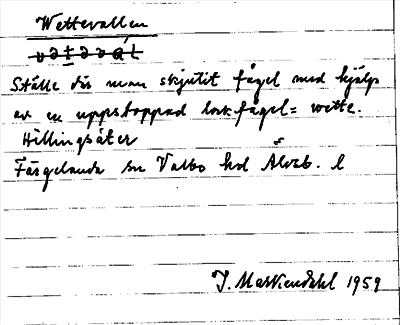 Wettevallen
vətəvál
Ställe där man skjutit fågel med hjälp
av en uppstoppad lockfågel = wette.
Hillingsäter
Färgelanda sn Valbo hd Älvsb. l
J. Markendahl 1959